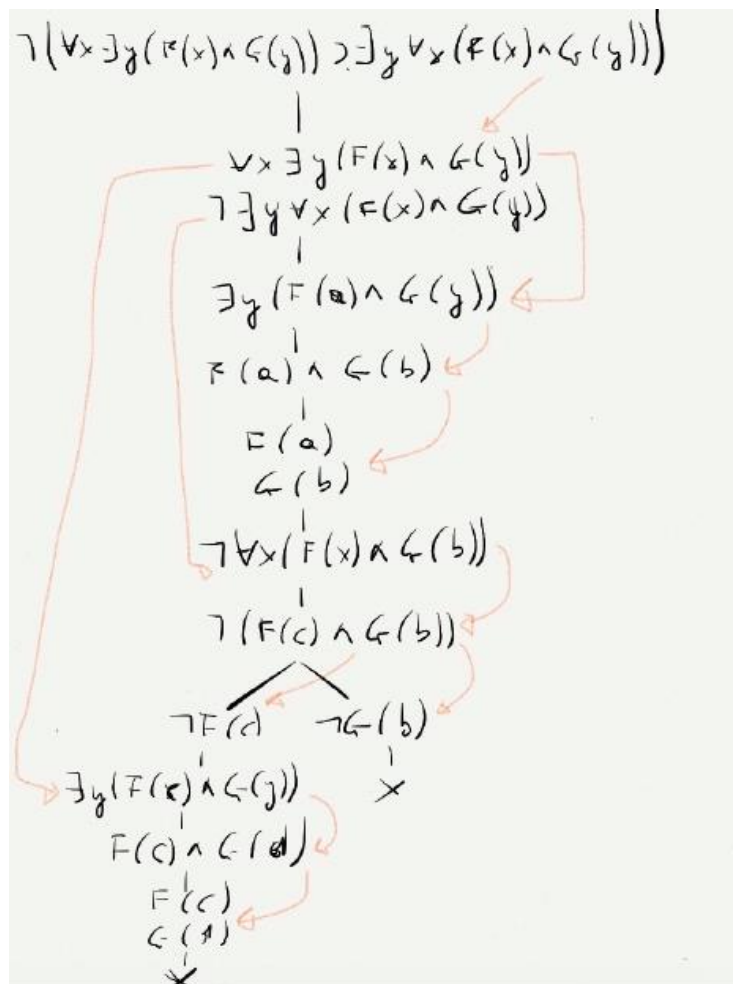 ¬(∀x∃y(F(x)∧G(y))⊃∃y∀x(F(x)∧G(y)))
∀x∃y(F(x)∧G(y))
¬∃y∀x(F(x)∧G(y))
∃y(F(a)∧G(y))
F(a)∧G(b)
F(a)
G(b)
¬∀x(F(x)∧G(b))
¬(F(c)∧G(b))
¬F(c) ¬G(b)
∃y(F(c)∧G(y)) ×
F(c)∧G(d)
F(c)
G(d)
×